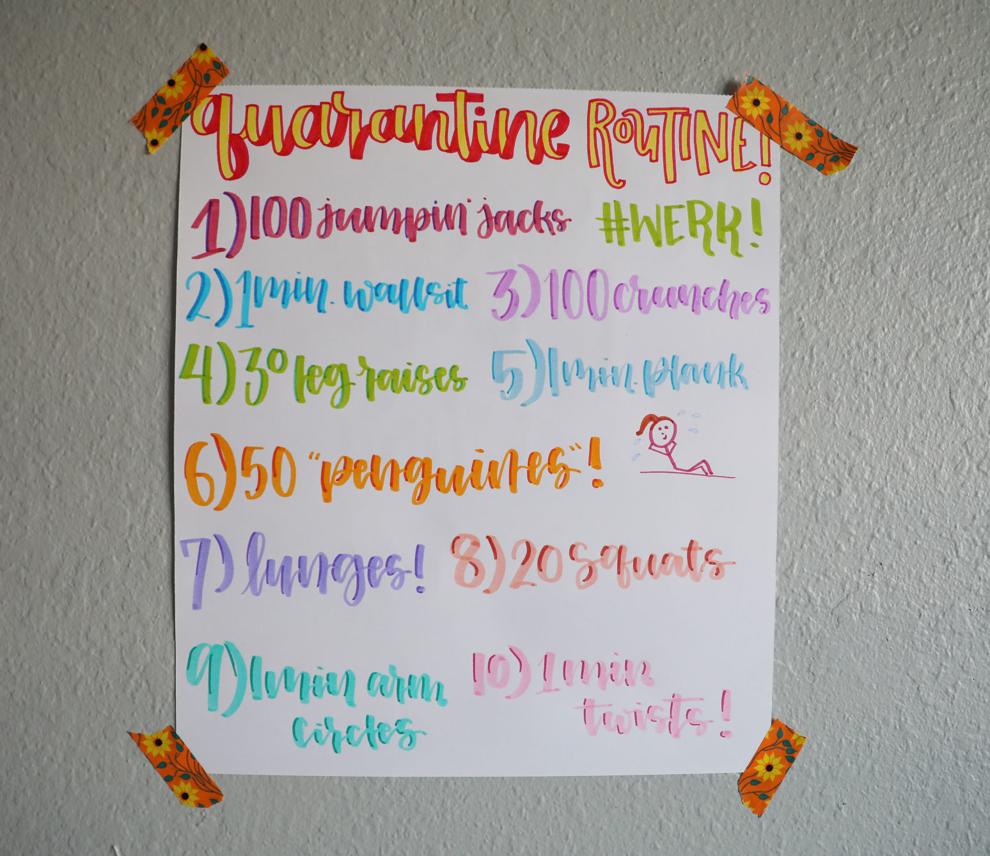 quarantine ROUTINE!
1) 100 jumpin' jacks #WERK!
2) 1 min. wallsit 3) 100 crunches
4) 30 leg raises 5) 1 min. plank
6) 50 "penguines"!
7) lunges! 8) 20 squats
9) 1 min arm circles
10) 1 min twists!